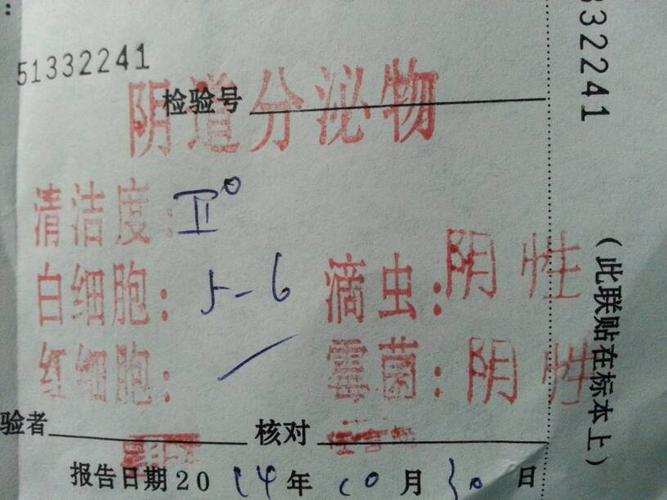 51332241
检验号
阴道分泌物
清洁度:Ⅱ°
白细胞:5-6 滴虫:阴性
红细胞:/ 霉菌:阴性
验者 核对
报告日期2014年10月30日
332241
(此联贴在标本上)